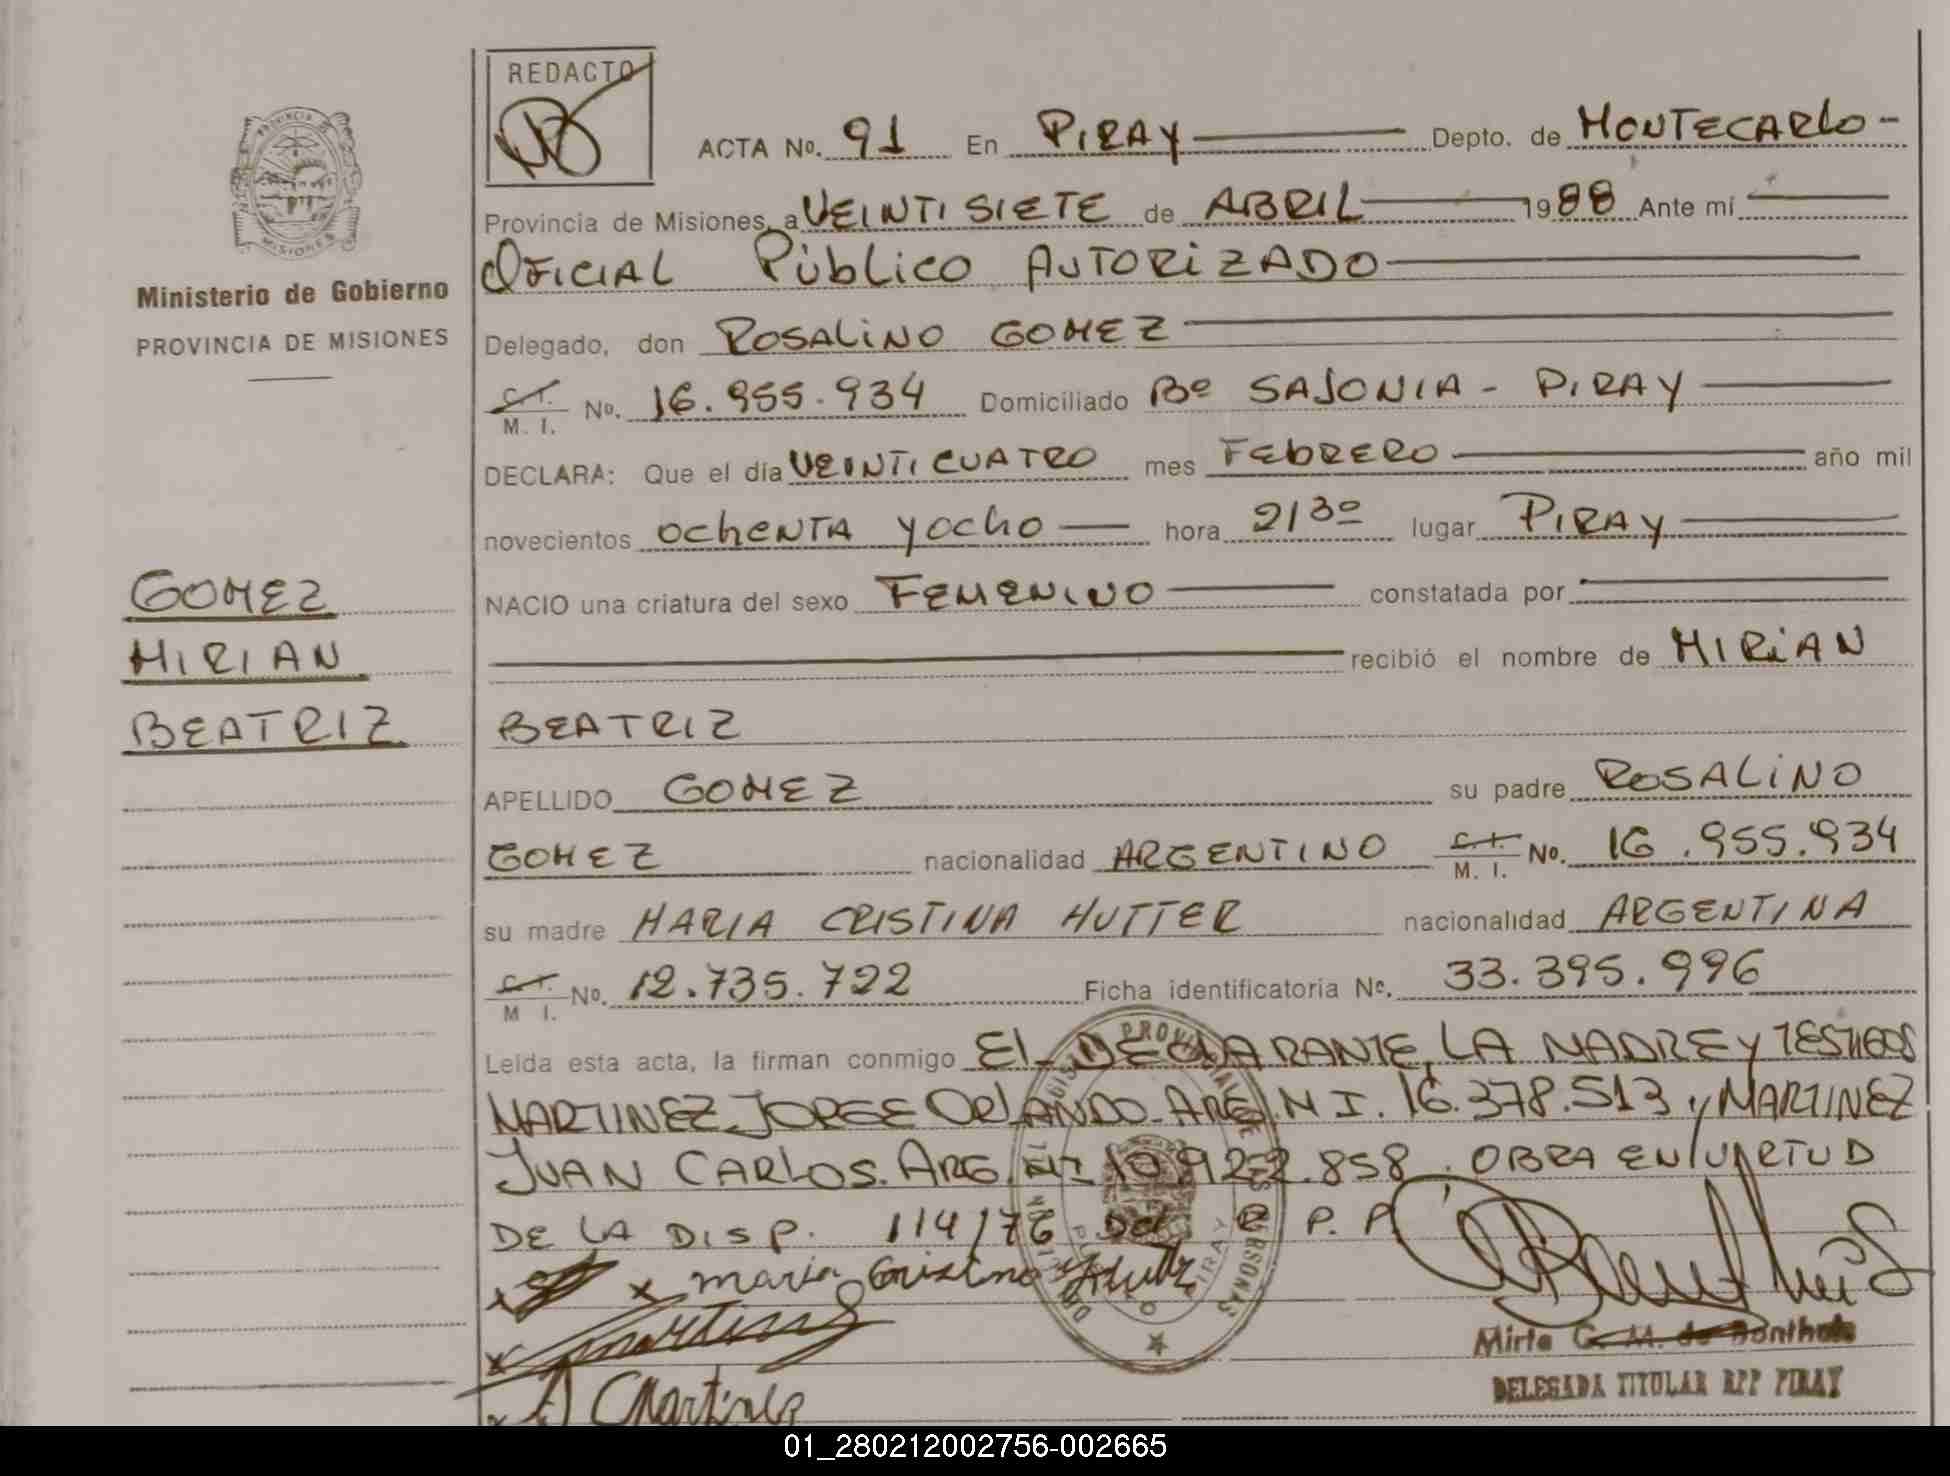 REDACTO
ACTA No. 91 En PIRAY Depto. de MONTECARLO -
Provincia de Misiones, a VEINTISIETE de ABRIL 1988 Ante mí
OFICIAL Público AUTORIZADO
PROVINCIA DE
MISIONES
Ministerio de Gobierno
PROVINCIA DE MISIONES
Delegado, don ROSALINO GOMEZ
C.I.
M. I. No. 16.955.934 Domiciliado Bº SAJONIA - PIRAY
DECLARA: Que el día VEINTICUATRO mes FEbRERO año mil
novecientos OchENTA y Ocho hora 2130 lugar PIRAY
NACIO una criatura del sexo FEMENINO constatada por
recibió el nombre de MIRIAN
GOMEZ
MIRIAN
BEATRIZ
BEATRIZ
APELLIDO GOMEZ su padre ROSALINO
GOMEZ nacionalidad ARGENTINO C.I.
M. I. No. 16.955.934
su madre MARIA CRISTINA HUTTER nacionalidad ARGENTINA
C.I.
M I. No. 12.735.722 Ficha identificatoria No. 33.395.996
Leída esta acta, la firman conmigo El DECLARANTE, LA MADRE Y TESTIGOS
MARTINEZ JORGE ORLANDO. ARG. M I. 16.378.513 y MARTINEZ
JUAN CARLOS. ARG. MI 10.922.858. OBRA EN VIRTUD
DE LA DISP. 114/76 Del R. P. P
x x maria Cristina Hutter
x Martinez
Martinez
Mirta G. M. de Bonthuis
DELEGADA TITULAR RPP PIRAY
01_280212002756-002665